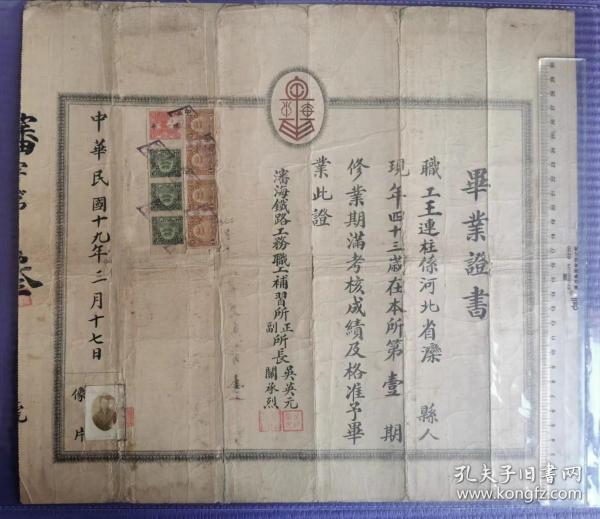 畢業證書
職工王連柱係河北省灤縣人
現年四十三歲在本所第壹期
修業期滿考核成績及格准予畢
業此證
瀋海鐵路工務職工補習所正副所長吳英元關承烈
中華民國十九年二月十七日
像片
瀋字第
孔夫子旧书网
www.kongfz.com